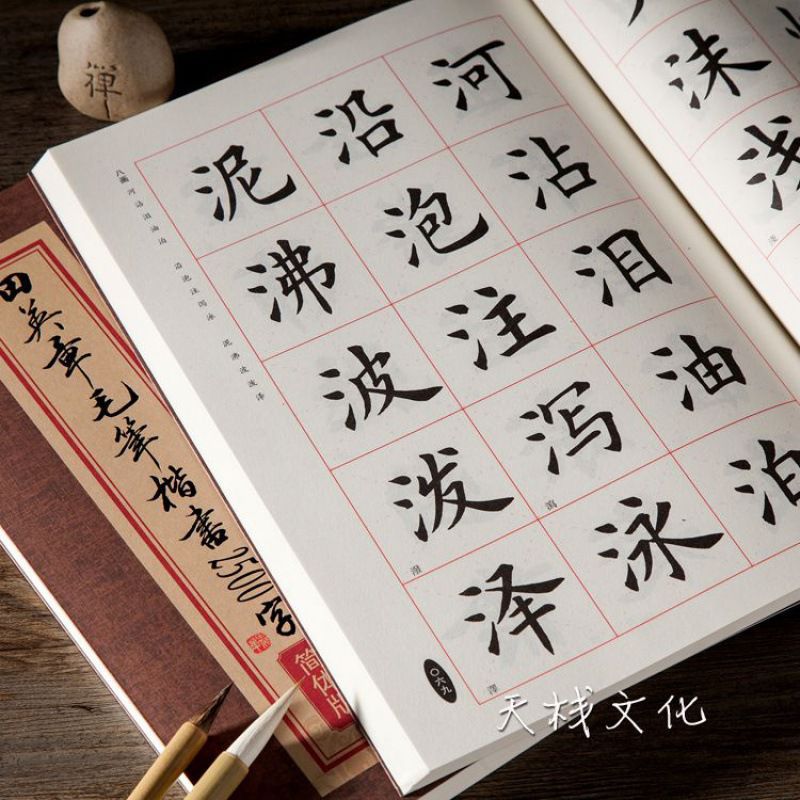 禅
沫浅
河沾泪油泊
沿泡注泻泳
瀉
泥沸波泼泽
潑
澤
八画 河沾泪油泊 沿泡注泻泳 泥沸波泼泽
〇六九
田英章毛筆楷書2500字
简体版
天栈文化